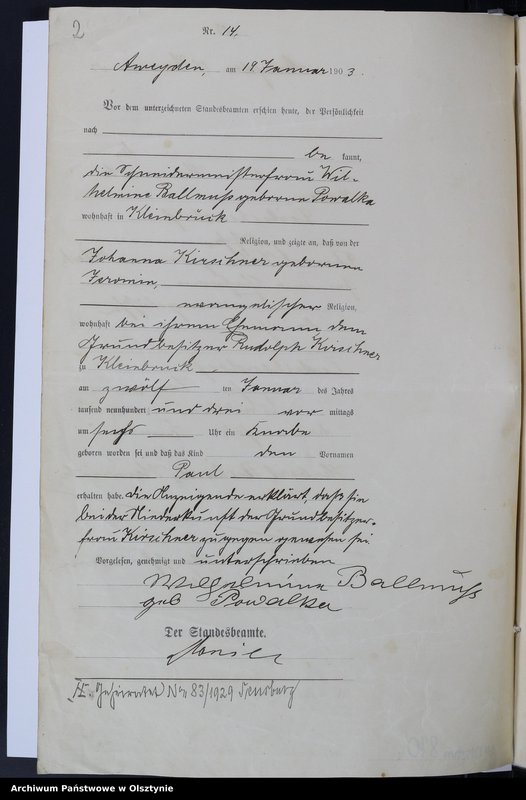 2
Nr. 14.
Aweyden, am 19 Januar 1903.
Vor dem unterzeichneten Standesbeamten erschien heute, der Persönlichkeit
nach
be kannt,
die Schneidermeisterfrau Wil-
helmine Ballmuß geborne Powalka
wohnhaft in Kleinbruck
Religion, und zeigte an, daß von der
Johanna Kirschner gebornen
Jeromin,
evangelischer Religion,
wohnhaft bei ihrem Ehemann dem
Grundbesitzer Rudolph Kirschner
zu Kleinbruck
am zwölf ten Januar des Jahres
tausend neunhundert und drei vor mittags
um sechs Uhr ein Knabe
geboren worden sei und daß das Kind den Vornamen
Paul
erhalten habe. Die Anzeigende erklärt, daß sie
bei der Niederkunft der Grundbesitzer-
frau Kirschner zugegen gewesen sei
Vorgelesen, genehmigt und unterschrieben
Wilhelmine Ballmuß
geb Powalka
Der Standesbeamte.
Geheiratet Nr 83/1929 Sensburg
Archiwum Państwowe w Olsztynie